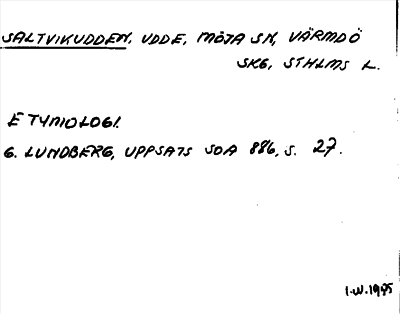 SALTVIKUDDEN. UDDE, MÖJA SN, VÄRMDÖ
SKG, STHLMS L.
ETYMOLOGI.
G. LUNDBERG, UPPSATS SOA 886, S. 27.
I.W.1975